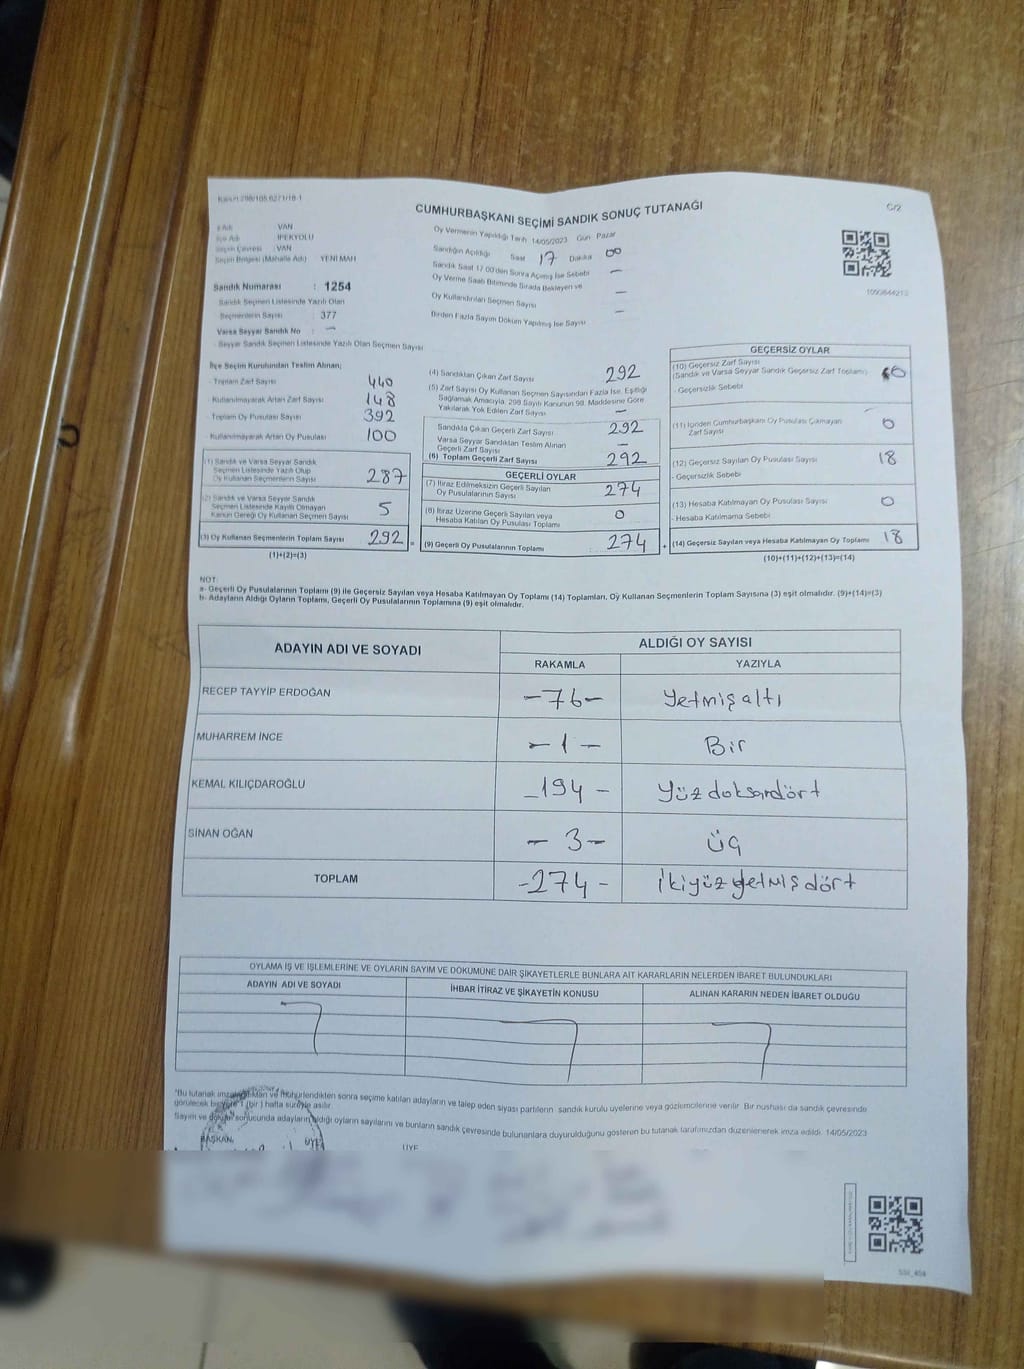 Kanun 298/105,6271/18-1
C/2
CUMHURBAŞKANI SEÇİMİ SANDIK SONUÇ TUTANAĞI
İl Adı VAN
İlçe Adı İPEKYOLU
Seçim Çevresi : VAN
Seçim Bölgesi (Mahalle Adı) YENİ MAH
Sandık Numarası : 1254
Sandık Seçmen Listesinde Yazılı Olan
Seçmenlerin Sayısı 377
Varsa Seyyar Sandık No : —
- Seyyar Sandık Seçmen Listesinde Yazılı Olan Seçmen Sayısı
Oy Vermenin Yapıldığı Tarih 14/05/2023 Gün Pazar
Sandığın Açıldığı Saat 17 Dakika 00
Sandık Saat 17.00'den Sonra Açılmış İse Sebebi —
Oy Verme Saati Bitiminde Sırada Bekleyen ve
Oy Kullandırılan Seçmen Sayısı —
Birden Fazla Sayım Döküm Yapılmış İse Sayısı —
İlçe Seçim Kurulundan Teslim Alınan;
- Toplam Zarf Sayısı 440
- Kullanılmayarak Artan Zarf Sayısı 148
- Toplam Oy Pusulası Sayısı 392
- Kullanılmayarak Artan Oy Pusulası 100
(1) Sandık ve Varsa Seyyar Sandık
Seçmen Listesinde Yazılı Olup
Oy Kullanan Seçmenlerin Sayısı 287
(2) Sandık ve Varsa Seyyar Sandık
Seçmen Listesinde Kayıtlı Olmayan
Kanun Gereği Oy Kullanan Seçmen Sayısı 5
(3) Oy Kullanan Seçmenlerin Toplam Sayısı 292 =
(1)+(2)=(3)
(4) Sandıktan Çıkan Zarf Sayısı 292
(5) Zarf Sayısı Oy Kullanan Seçmen Sayısından Fazla İse, Eşitliği
Sağlamak Amacıyla, 298 Sayılı Kanunun 98. Maddesine Göre
Yakılarak Yok Edilen Zarf Sayısı —
Sandıkta Çıkan Geçerli Zarf Sayısı 292
Varsa Seyyar Sandıktan Teslim Alınan
Geçerli Zarf Sayısı —
(6) Toplam Geçerli Zarf Sayısı 292
GEÇERLİ OYLAR
(7) İtiraz Edilmeksizin Geçerli Sayılan
Oy Pusulalarının Sayısı 274
(8) İtiraz Üzerine Geçerli Sayılan veya
Hesaba Katılan Oy Pusulası Toplamı 0
(9) Geçerli Oy Pusulalarının Toplamı 274 +
GEÇERSİZ OYLAR
(10) Geçersiz Zarf Sayısı
(Sandık ve Varsa Seyyar Sandık Geçersiz Zarf Toplamı) 0
- Geçersizlik Sebebi
(11) İçinden Cumhurbaşkanı Oy Pusulası Çıkmayan
Zarf Sayısı 0
(12) Geçersiz Sayılan Oy Pusulası Sayısı 18
- Geçersizlik Sebebi
(13) Hesaba Katılmayan Oy Pusulası Sayısı 0
- Hesaba Katılmama Sebebi
(14) Geçersiz Sayılan veya Hesaba Katılmayan Oy Toplamı 18
(10)+(11)+(12)+(13)=(14)
NOT:
a- Geçerli Oy Pusulalarının Toplamı (9) ile Geçersiz Sayılan veya Hesaba Katılmayan Oy Toplamı (14) Toplamları, Oy Kullanan Seçmenlerin Toplam Sayısına (3) eşit olmalıdır. (9)+(14)=(3)
b- Adayların Aldığı Oyların Toplamı, Geçerli Oy Pusulalarının Toplamına (9) eşit olmalıdır.
ADAYIN ADI VE SOYADI ALDIĞI OY SAYISI
RAKAMLA YAZIYLA
RECEP TAYYİP ERDOĞAN -76- Yetmiş altı
MUHARREM İNCE -1- Bir
KEMAL KILIÇDAROĞLU -194- Yüz doksandört
SİNAN OĞAN -3- Üç
TOPLAM -274- İkiyüzyetmişdört
OYLAMA İŞ VE İŞLEMLERİNE VE OYLARIN SAYIM VE DÖKÜMÜNE DAİR ŞİKAYETLERLE BUNLARA AİT KARARLARIN NELERDEN İBARET BULUNDUKLARI
ADAYIN ADI VE SOYADI İHBAR İTİRAZ VE ŞİKAYETİN KONUSU ALINAN KARARIN NEDEN İBARET OLDUĞU
*Bu tutanak ve mühürlendikten sonra seçime katılan adayların ve talep eden siyasi partilerin sandık kurulu üyelerine veya gözlemcilerine verilir. Bir nüshası da sandık çevresinde
görülecek bir yere 1 (bir) hafta süreyle asılır.
Sayım ve döküm sonucunda adayların aldığı oyların sayılarını ve bunların sandık çevresinde bulunanlara duyurulduğunu gösteren bu tutanak tarafımızdan düzenlenerek imza edildi. 14/05/2023
BAŞKAN ÜYE ÜYE